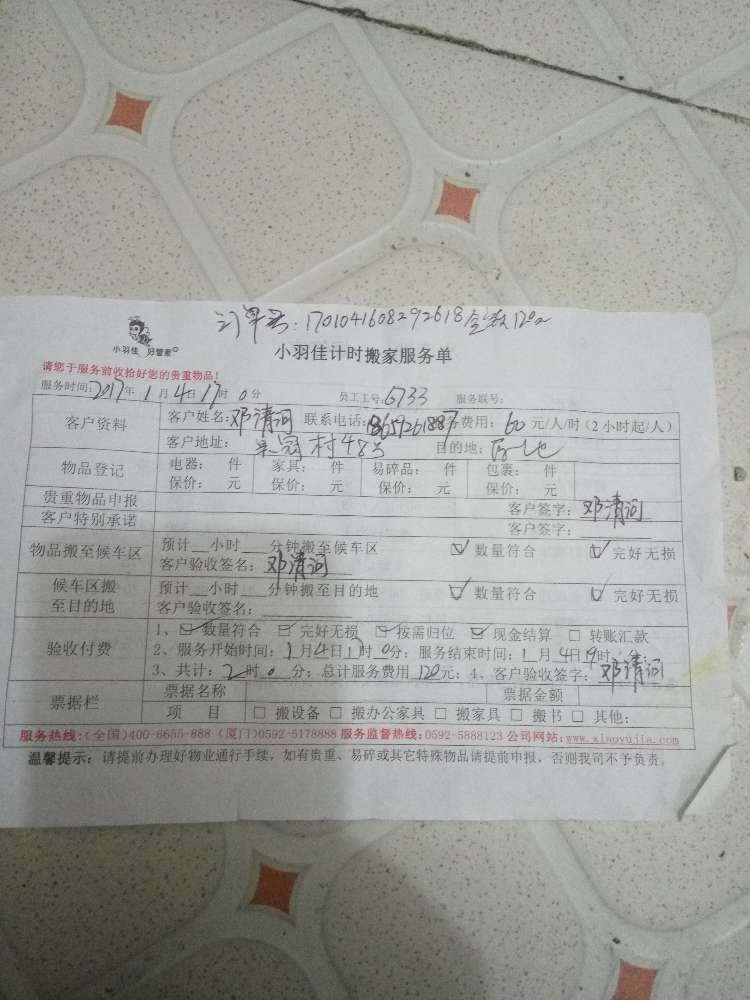 订单号:1701041608292618 金额120元
小羽佳 好管家
小羽佳计时搬家服务单
请您于服务前收拾好您的贵重物品!
服务时间:2017年1月4日17时0分 员工工号:6733 服务联号:
客户资料 客户姓名:邓清河 联系电话: 费用:60元/人/时(2小时起/人)
客户地址: 村48号 目的地:
物品登记 电器: 件 家具: 件 易碎品: 件 包裹: 件
保价: 元 保价: 元 保价: 元 保价: 元
贵重物品申报 客户签字:邓清河
客户特别承诺 客户签字:
物品搬至候车区 预计__小时__分钟搬至候车区 ☑ 数量符合 ☑ 完好无损
客户验收签名:邓清河
候车区搬至目的地 预计__小时__分钟搬至目的地 ☑ 数量符合 ☑ 完好无损
客户验收签名:
验收付费 1、☑ 数量符合 ☑ 完好无损 ☑ 按需归位 ☑ 现金结算 □ 转账汇款
2、服务开始时间:1月4日17时0分;服务结束时间:1月4日19时
3、共计:2时0分;总计服务费用120元;4、客户验收签字:邓清河
票据栏 票据名称 票据金额
项 目 □ 搬设备 □ 搬办公家具 □ 搬家具 □ 搬书 □ 其他:
服务热线:(全国)400-6655-888 (厦门)0592-5178888 服务监督热线:0592-5888123 公司网站:www.xiaoyujia.com
温馨提示:请提前办理好物业通行手续,如有贵重、易碎或其它特殊物品请提前申报,否则我司不予负责。